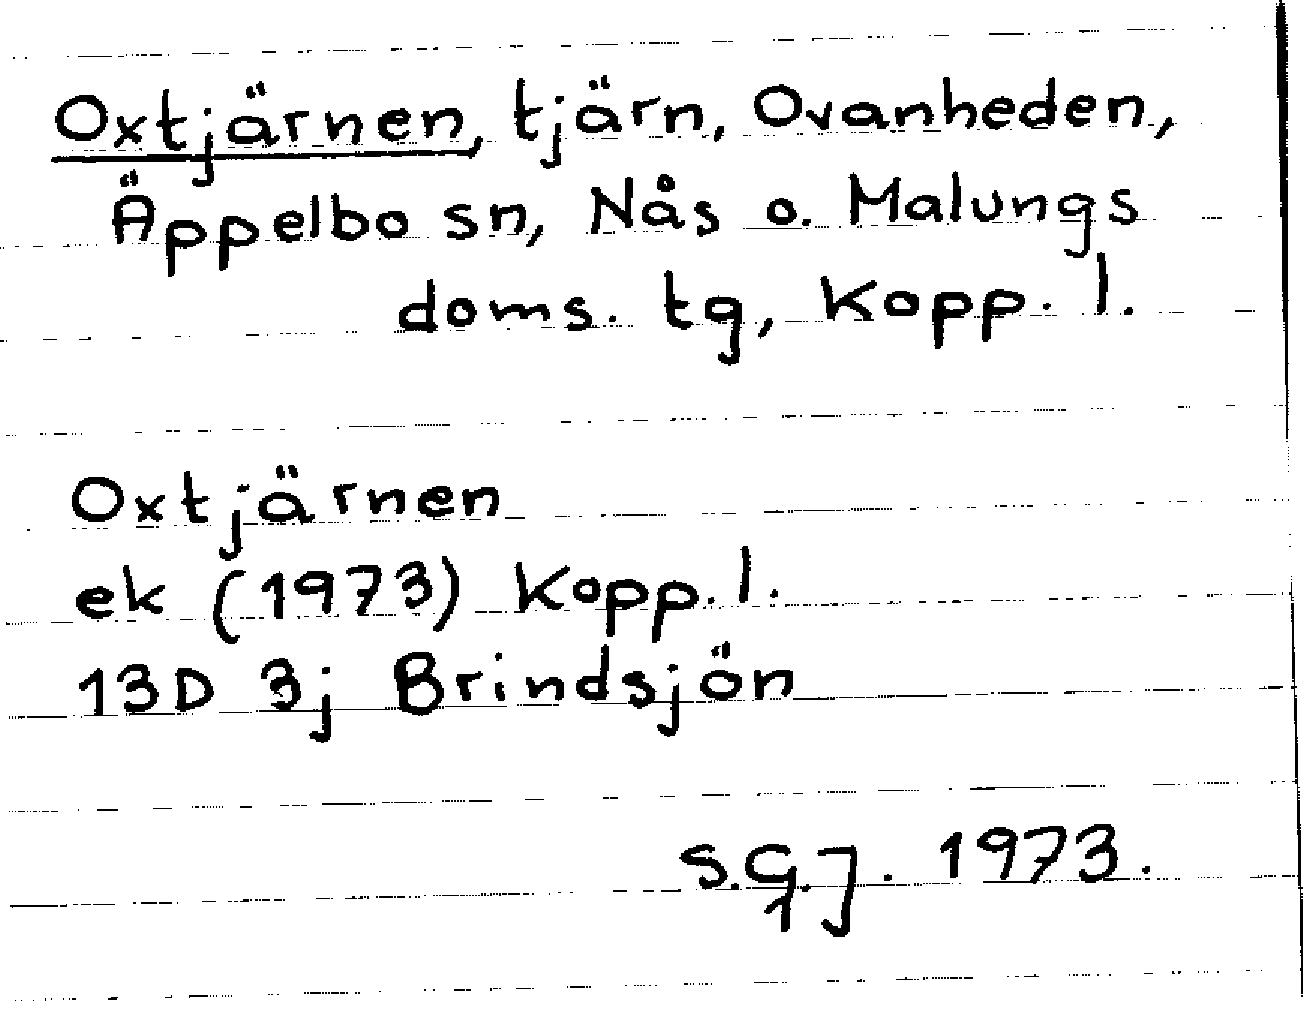 Oxtjärnen, tjärn, Ovanheden,
Äppelbo sn, Nås o. Malungs
doms. tg, Kopp. l.
Oxtjärnen
ek (1973) Kopp. l.
13D 3j Brindsjön
S.G.J. 1973.